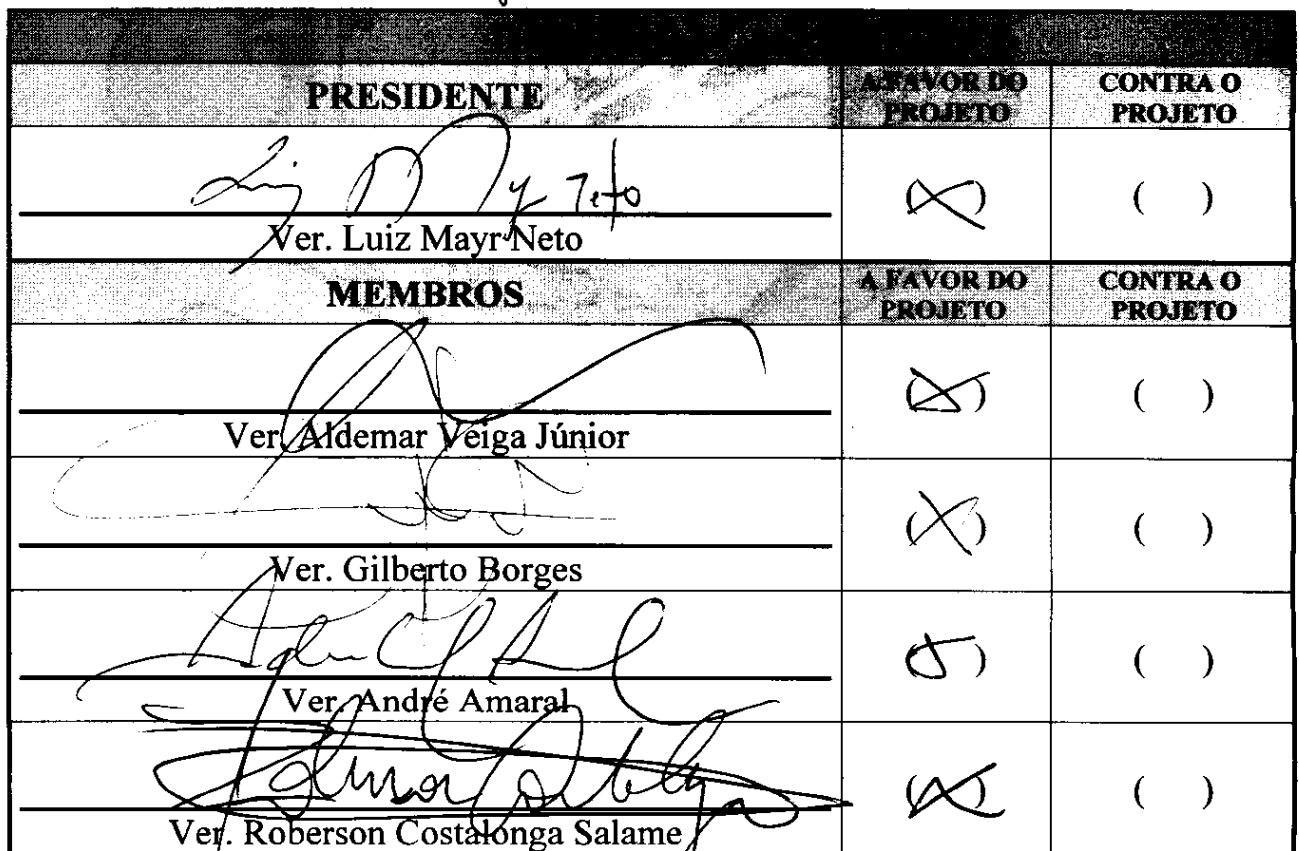 PRESIDENTE A FAVOR DO PROJETO CONTRA O PROJETO
( ) ( )
Ver. Luiz Mayr Neto
MEMBROS A FAVOR DO PROJETO CONTRA O PROJETO
(X) ( )
Ver. Aldemar Veiga Júnior
(X) ( )
Ver. Gilberto Borges
( ) ( )
Ver. André Amaral
(X) ( )
Ver. Roberson Costalonga Salame